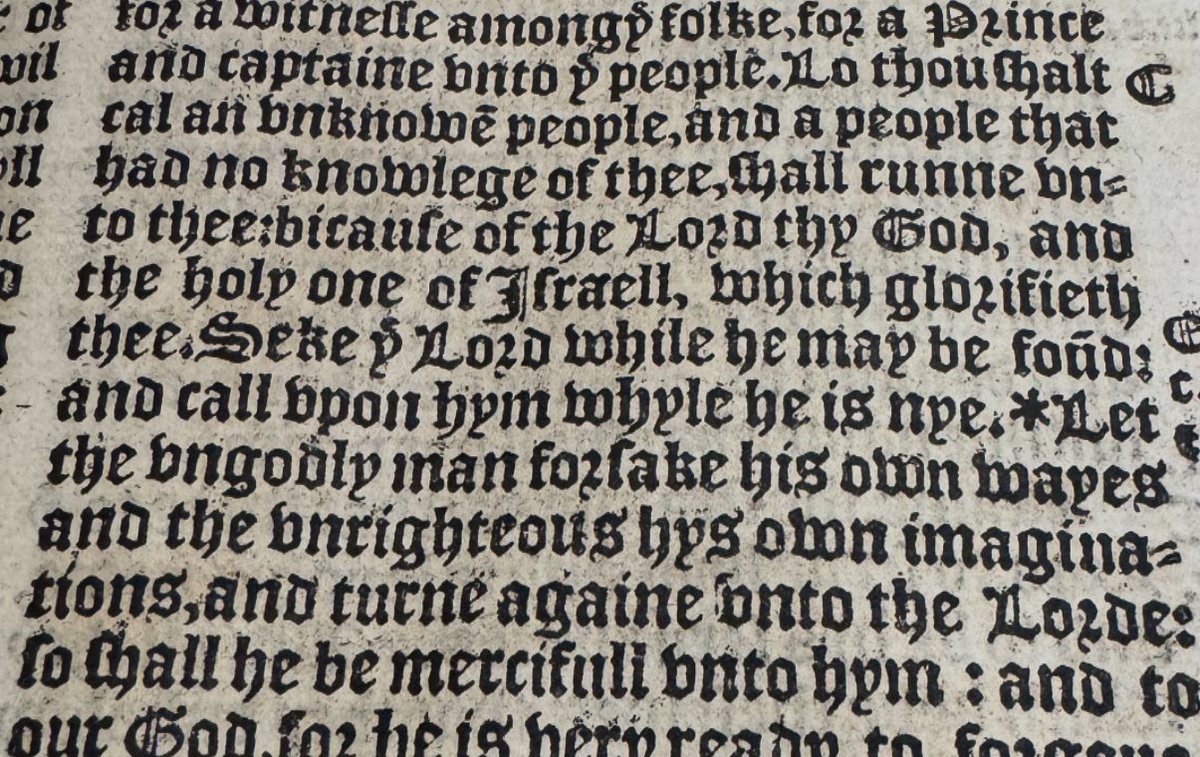 r of for a witnesse among yͤ folke, for a Prince
wil and captaine vnto yͤ people. Lo thou shalt C
on cal an vnknowē people, and a people that
had no knowlege of thee, shall runne vn-
to thee: bicause of the Lord thy God, and
the holy one of Israell, which glorifieth
thee. Seke yͤ Lord while he may be foūd:
and call vpon hym whyle he is nye. *Let
the vngodly man forsake his own wayes
and the vnrighteous hys own imagina-
tions, and turne againe vnto the Lorde:
so shall he be mercifull vnto hym : and to
our God, for he is very ready to forgeue